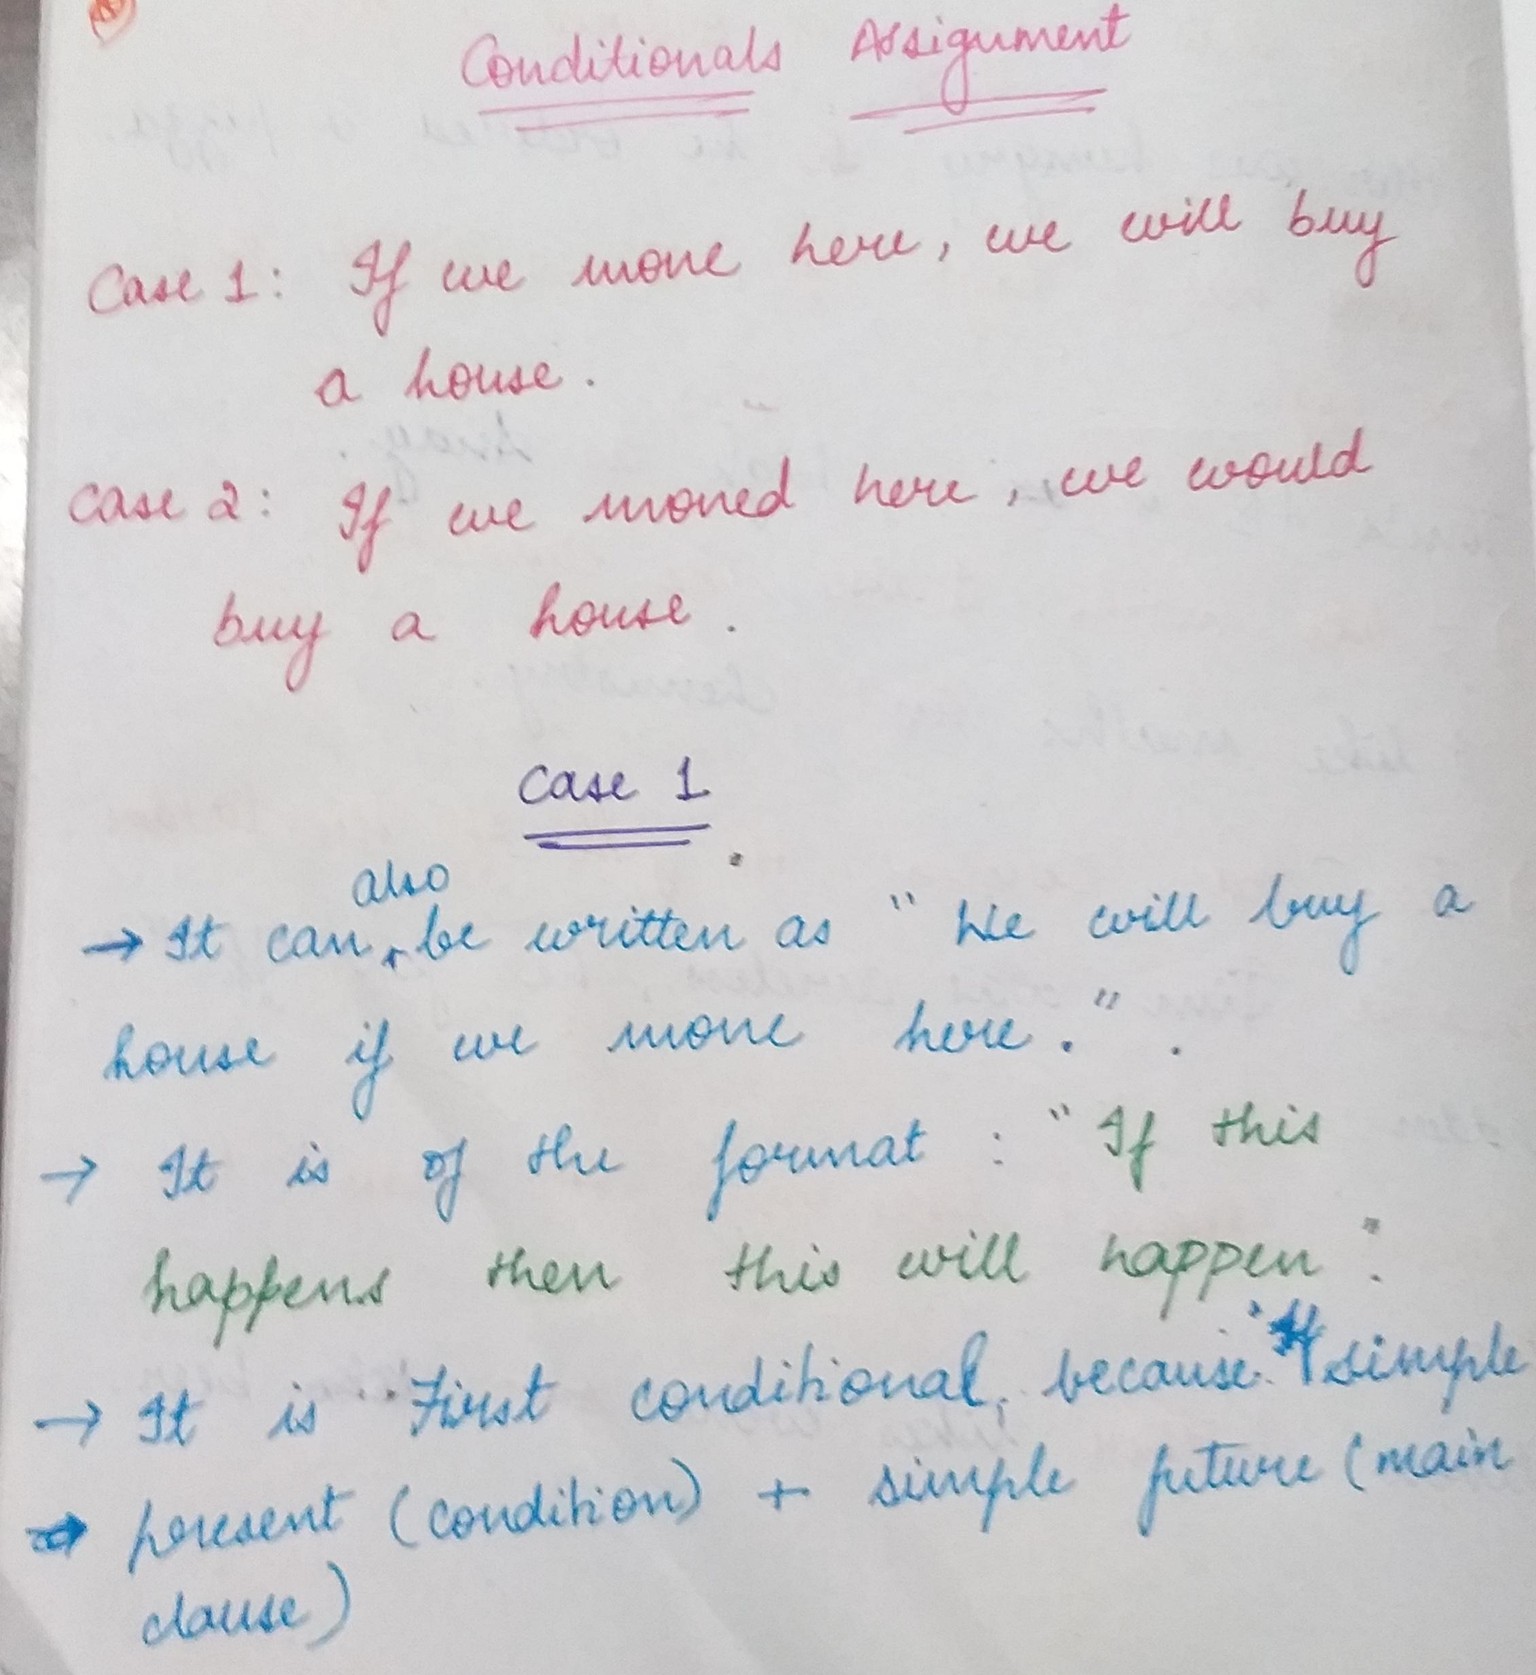 Conditionals Assignment
Case 1: If we move here, we will buy
a house.
Case 2: If we moved here, we would
buy a house.
Case 1
also
→ It can be written as "We will buy a
house if we move here.".
→ It is of the format: "If this
happens then this will happen".
→ It is First conditional, because simple
present (condition) + simple future (main
clause)